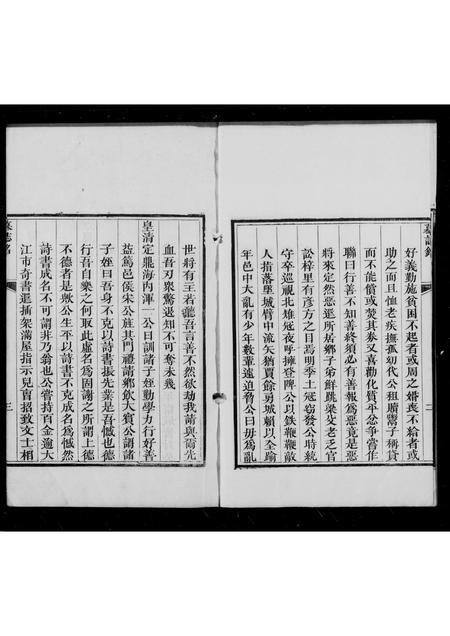 墓誌銘
二
好義勤施貧困不起者或周之婚喪不給者或
助之而且恤老疾撫孤幼代公租贖鬻子稱貸
而不能償或焚其券又喜勸化質平忿爭嘗作
聯曰行善不知善終須必有善報為惡竟是惡
將來定然惡逛所居鄉子弟鮮跳梁父老乏官
訟梓里有彥方之目焉明季土冦竊發公時統
守卒巡視北雉冦夜呼擁登陴公以鐵鞭鞭敵
人指落壓城臂中流矢猶賈餘勇城賴以全踰
年邑中大亂有少年數輩遠迫脅公曰毋為亂
世將有主若聽吾言善不然欲劫我請與爾先
血吾刃衆驚退知不可奪未幾
皇清定鼎海內渾一公日訓諸子姪勤學力行好善
益篤邑侯宋公旌其門禮請鄉飲大賓公謂諸
子姪曰吾身不克以詩書振先業是吾憾也德
行吾自樂之何取此虛名為固謝之所謂上德
不德者是歟公生平以詩書不克成名為憾然
詩書成名不可謂非乃翁也公嘗持百金遍大
江市奇書逛插架滿屋指示兒曹招致文士相
墓誌銘
三